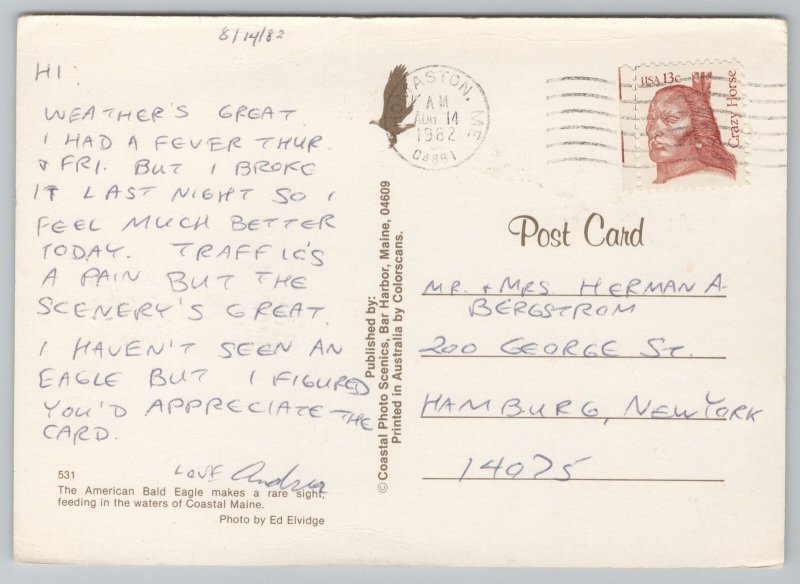 8/14/82
HI:
WEATHER'S GREAT
I HAD A FEVER THUR.
& FRI. BUT I BROKE
IT LAST NIGHT SO I
FEEL MUCH BETTER
TODAY. TRAFFIC'S
A PAIN BUT THE
SCENERY'S GREAT.
I HAVEN'T SEEN AN
EAGLE BUT I FIGURED
YOU'D APPRECIATE THE
CARD.
LOVE Andrea
531
The American Bald Eagle makes a rare sight,
feeding in the waters of Coastal Maine.
Photo by Ed Elvidge
Published by:
© Coastal Photo Scenics, Bar Harbor, Maine, 04609
Printed in Australia by Colorscans.
ASTON, ME
AM
AUG 14
1982
04861
USA 13c
Crazy Horse
Post Card
MR. & MRS HERMAN A.
BERGSTROM
200 GEORGE ST.
HAMBURG, NEW YORK
14075